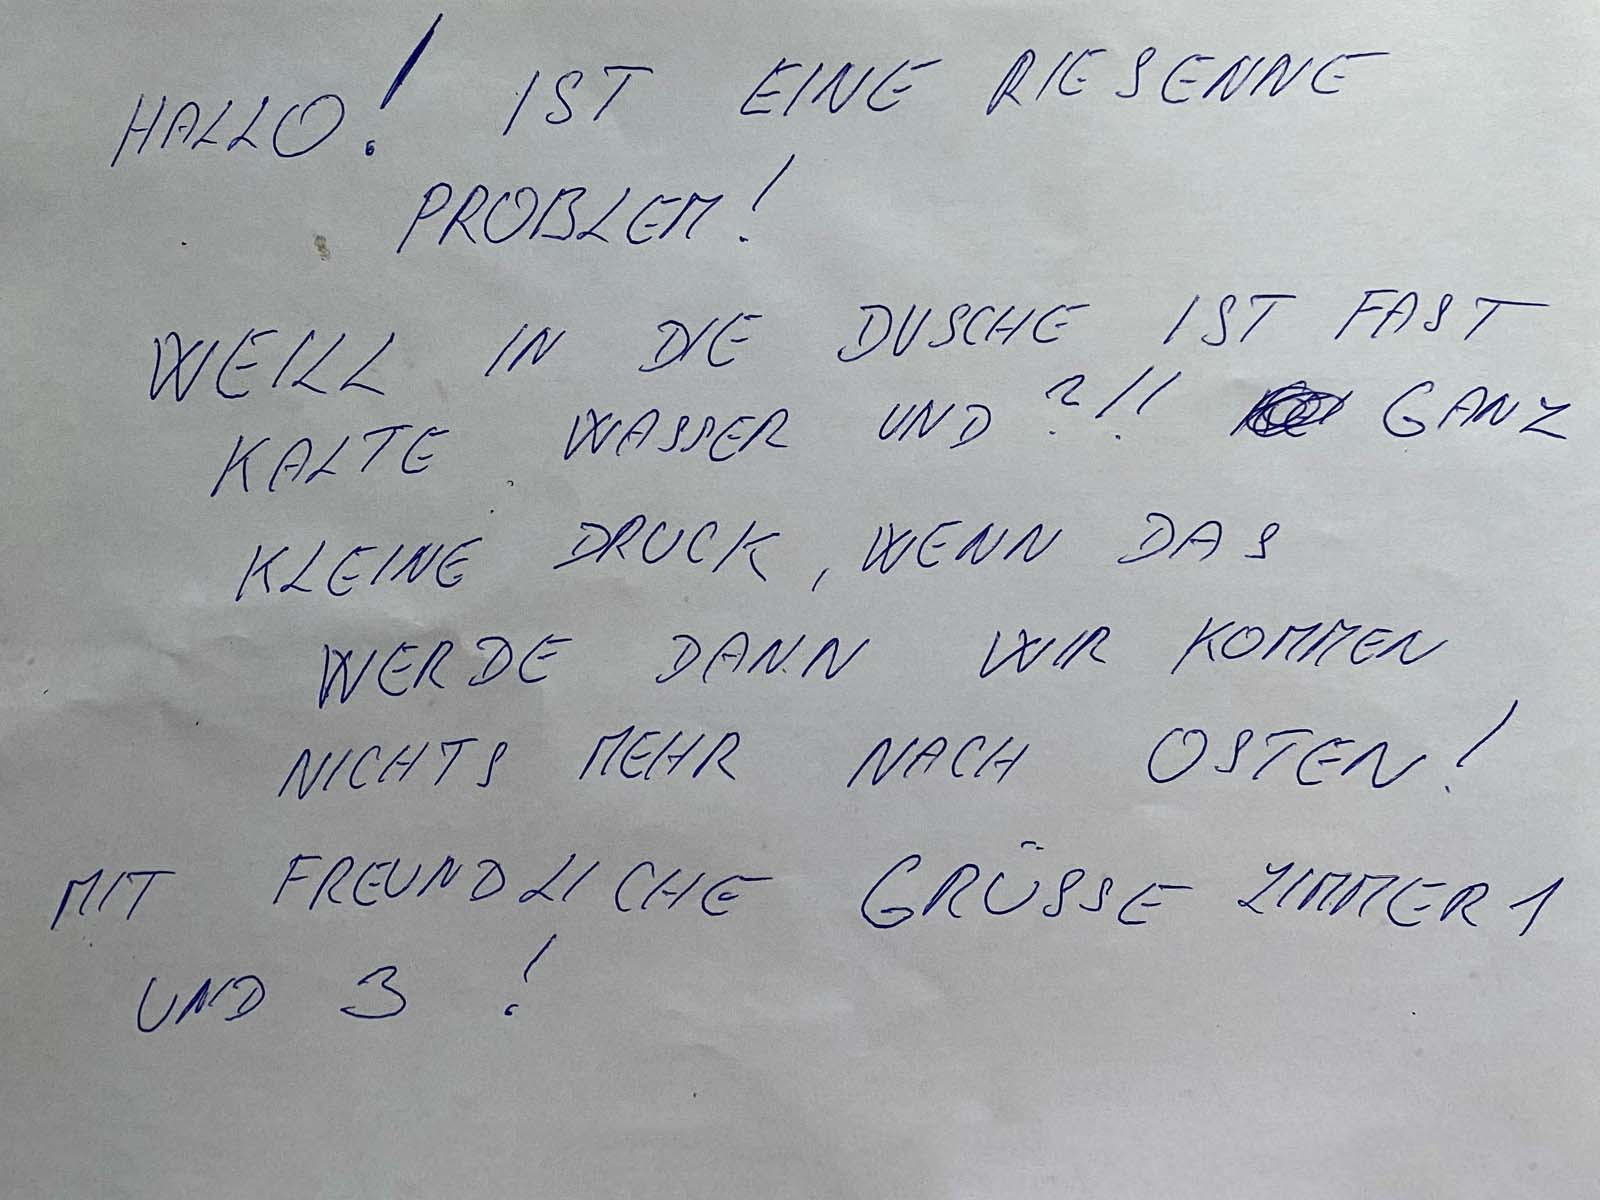 HALLO! IST EINE RIESENNE
PROBLEM!
WEILL IN DIE DUSCHE IST FAST
KALTE WASSER UND ?!! GANZ
KLEINE DRUCK, WENN DAS
WERDE DANN WIR KOMMEN
NICHTS MEHR NACH OSTEN!
MIT FREUNDLICHE GRÜSSE ZIMMER 1
UND 3 !